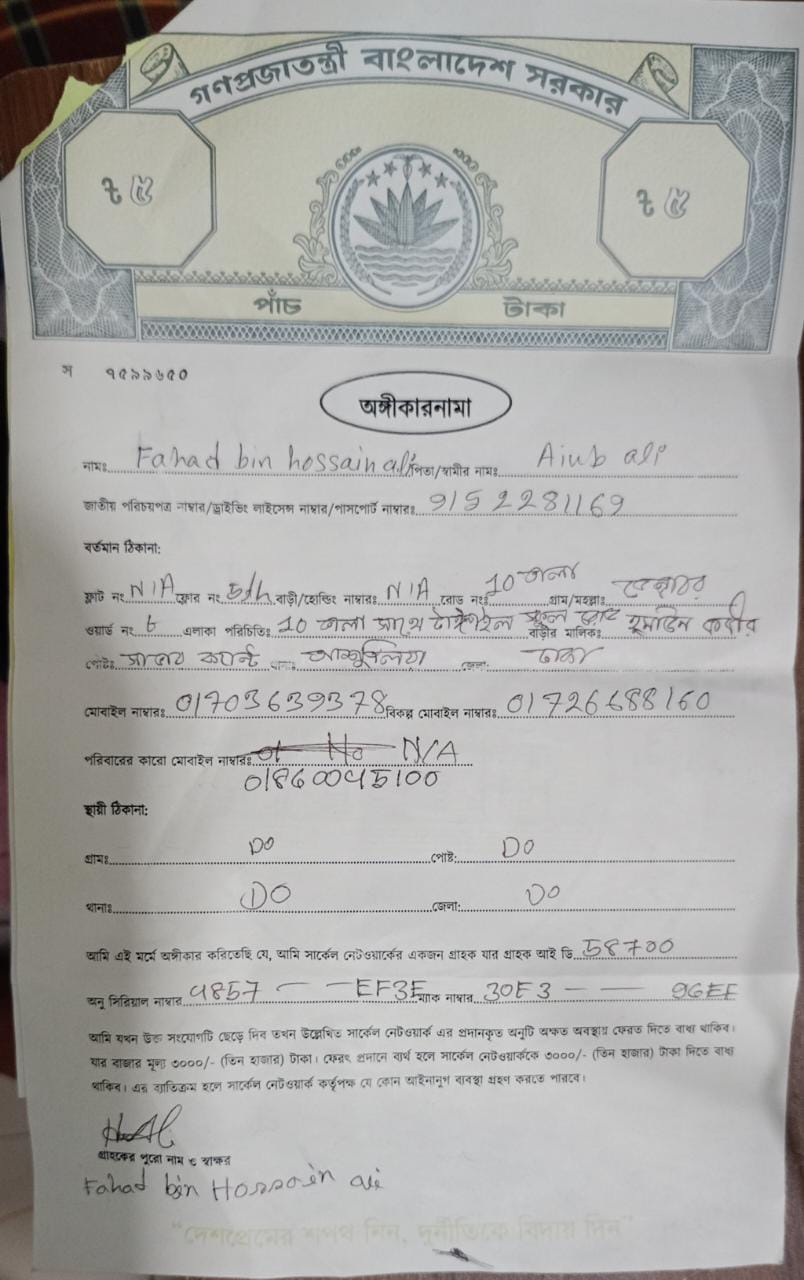 গণপ্রজাতন্ত্রী বাংলাদেশ সরকার
৳ ৫ ৳ ৫
পাঁচ টাকা
স ৭৫৯৯৬৫০
অঙ্গীকারনামা
নামঃ Fahad bin hossain ali পিতা/স্বামীর নামঃ Aiub ali
জাতীয় পরিচয়পত্র নাম্বার/ড্রাইভিং লাইসেন্স নাম্বার/পাসপোর্ট নাম্বারঃ 9152281169
বর্তমান ঠিকানা:
ফ্লাট নং N/A ফ্লোর নং 5th বাড়ী/হোল্ডিং নাম্বারঃ N/A রোড নংঃ 10 তলা গ্রাম/মহল্লাঃ
ওয়ার্ড নং ৮ এলাকা পরিচিতিঃ 10 তলা সাথে টাঙ্গাইল স্কুল বাড়ীর মালিকঃ হুমায়ন কবীর
পোষ্টঃ থানাঃ আশুলিয়া জেলা: ঢাকা
মোবাইল নাম্বারঃ 01703639378 বিকল্প মোবাইল নাম্বারঃ 01726688160
পরিবারের কারো মোবাইল নাম্বারঃ No N/A
01860045100
স্থায়ী ঠিকানা:
গ্রামঃ DO পোষ্ট: DO
থানাঃ DO জেলা: DO
আমি এই মর্মে অঙ্গীকার করিতেছি যে, আমি সার্কেল নেটওয়ার্কের একজন গ্রাহক যার গ্রাহক আই ডি 58700
অনু সিরিয়াল নাম্বার 4857 — — EF3E ম্যাক নাম্বার 30E3 — — 96EE
আমি যখন উক্ত সংযোগটি ছেড়ে দিব তখন উল্লেখিত সার্কেল নেটওয়ার্ক এর প্রদানকৃত অনুটি অক্ষত অবস্থায় ফেরত দিতে বাধ্য থাকিব।
যার বাজার মূল্য ৩০০০/- (তিন হাজার) টাকা। ফেরৎ প্রদানে ব্যর্থ হলে সার্কেল নেটওয়ার্ককে ৩০০০/- (তিন হাজার) টাকা দিতে বাধ্য
থাকিব। এর ব্যতিক্রম হলে সার্কেল নেটওয়ার্ক কর্তৃপক্ষ যে কোন আইনানুগ ব্যবস্থা গ্রহণ করতে পারবে।
গ্রাহকের পুরো নাম ও স্বাক্ষর
Fahad bin Hossain ali
“দেশপ্রেমের শপথ নিন, দুর্নীতিকে বিদায় দিন”